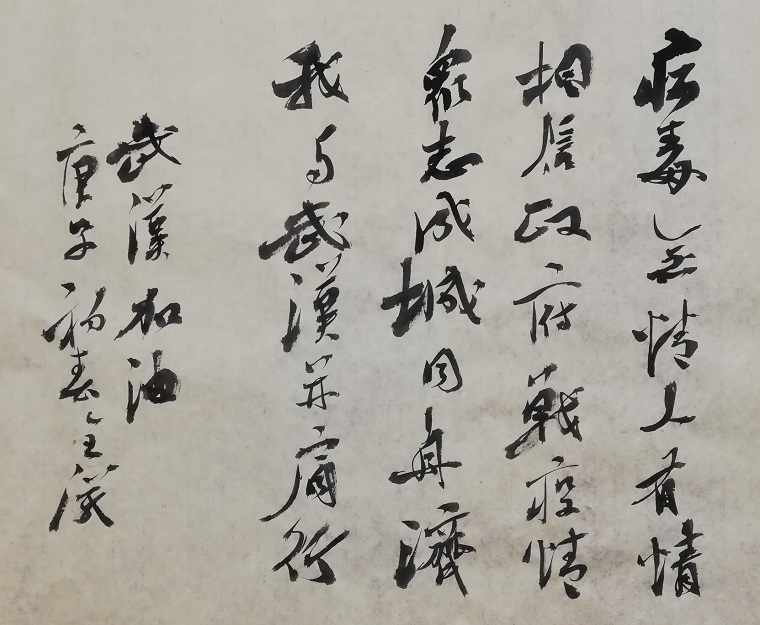 病毒無情人有情
相信政府戰疫情
眾志成城同舟濟
我与武漢并肩行
武漢加油
庚子初春全漢